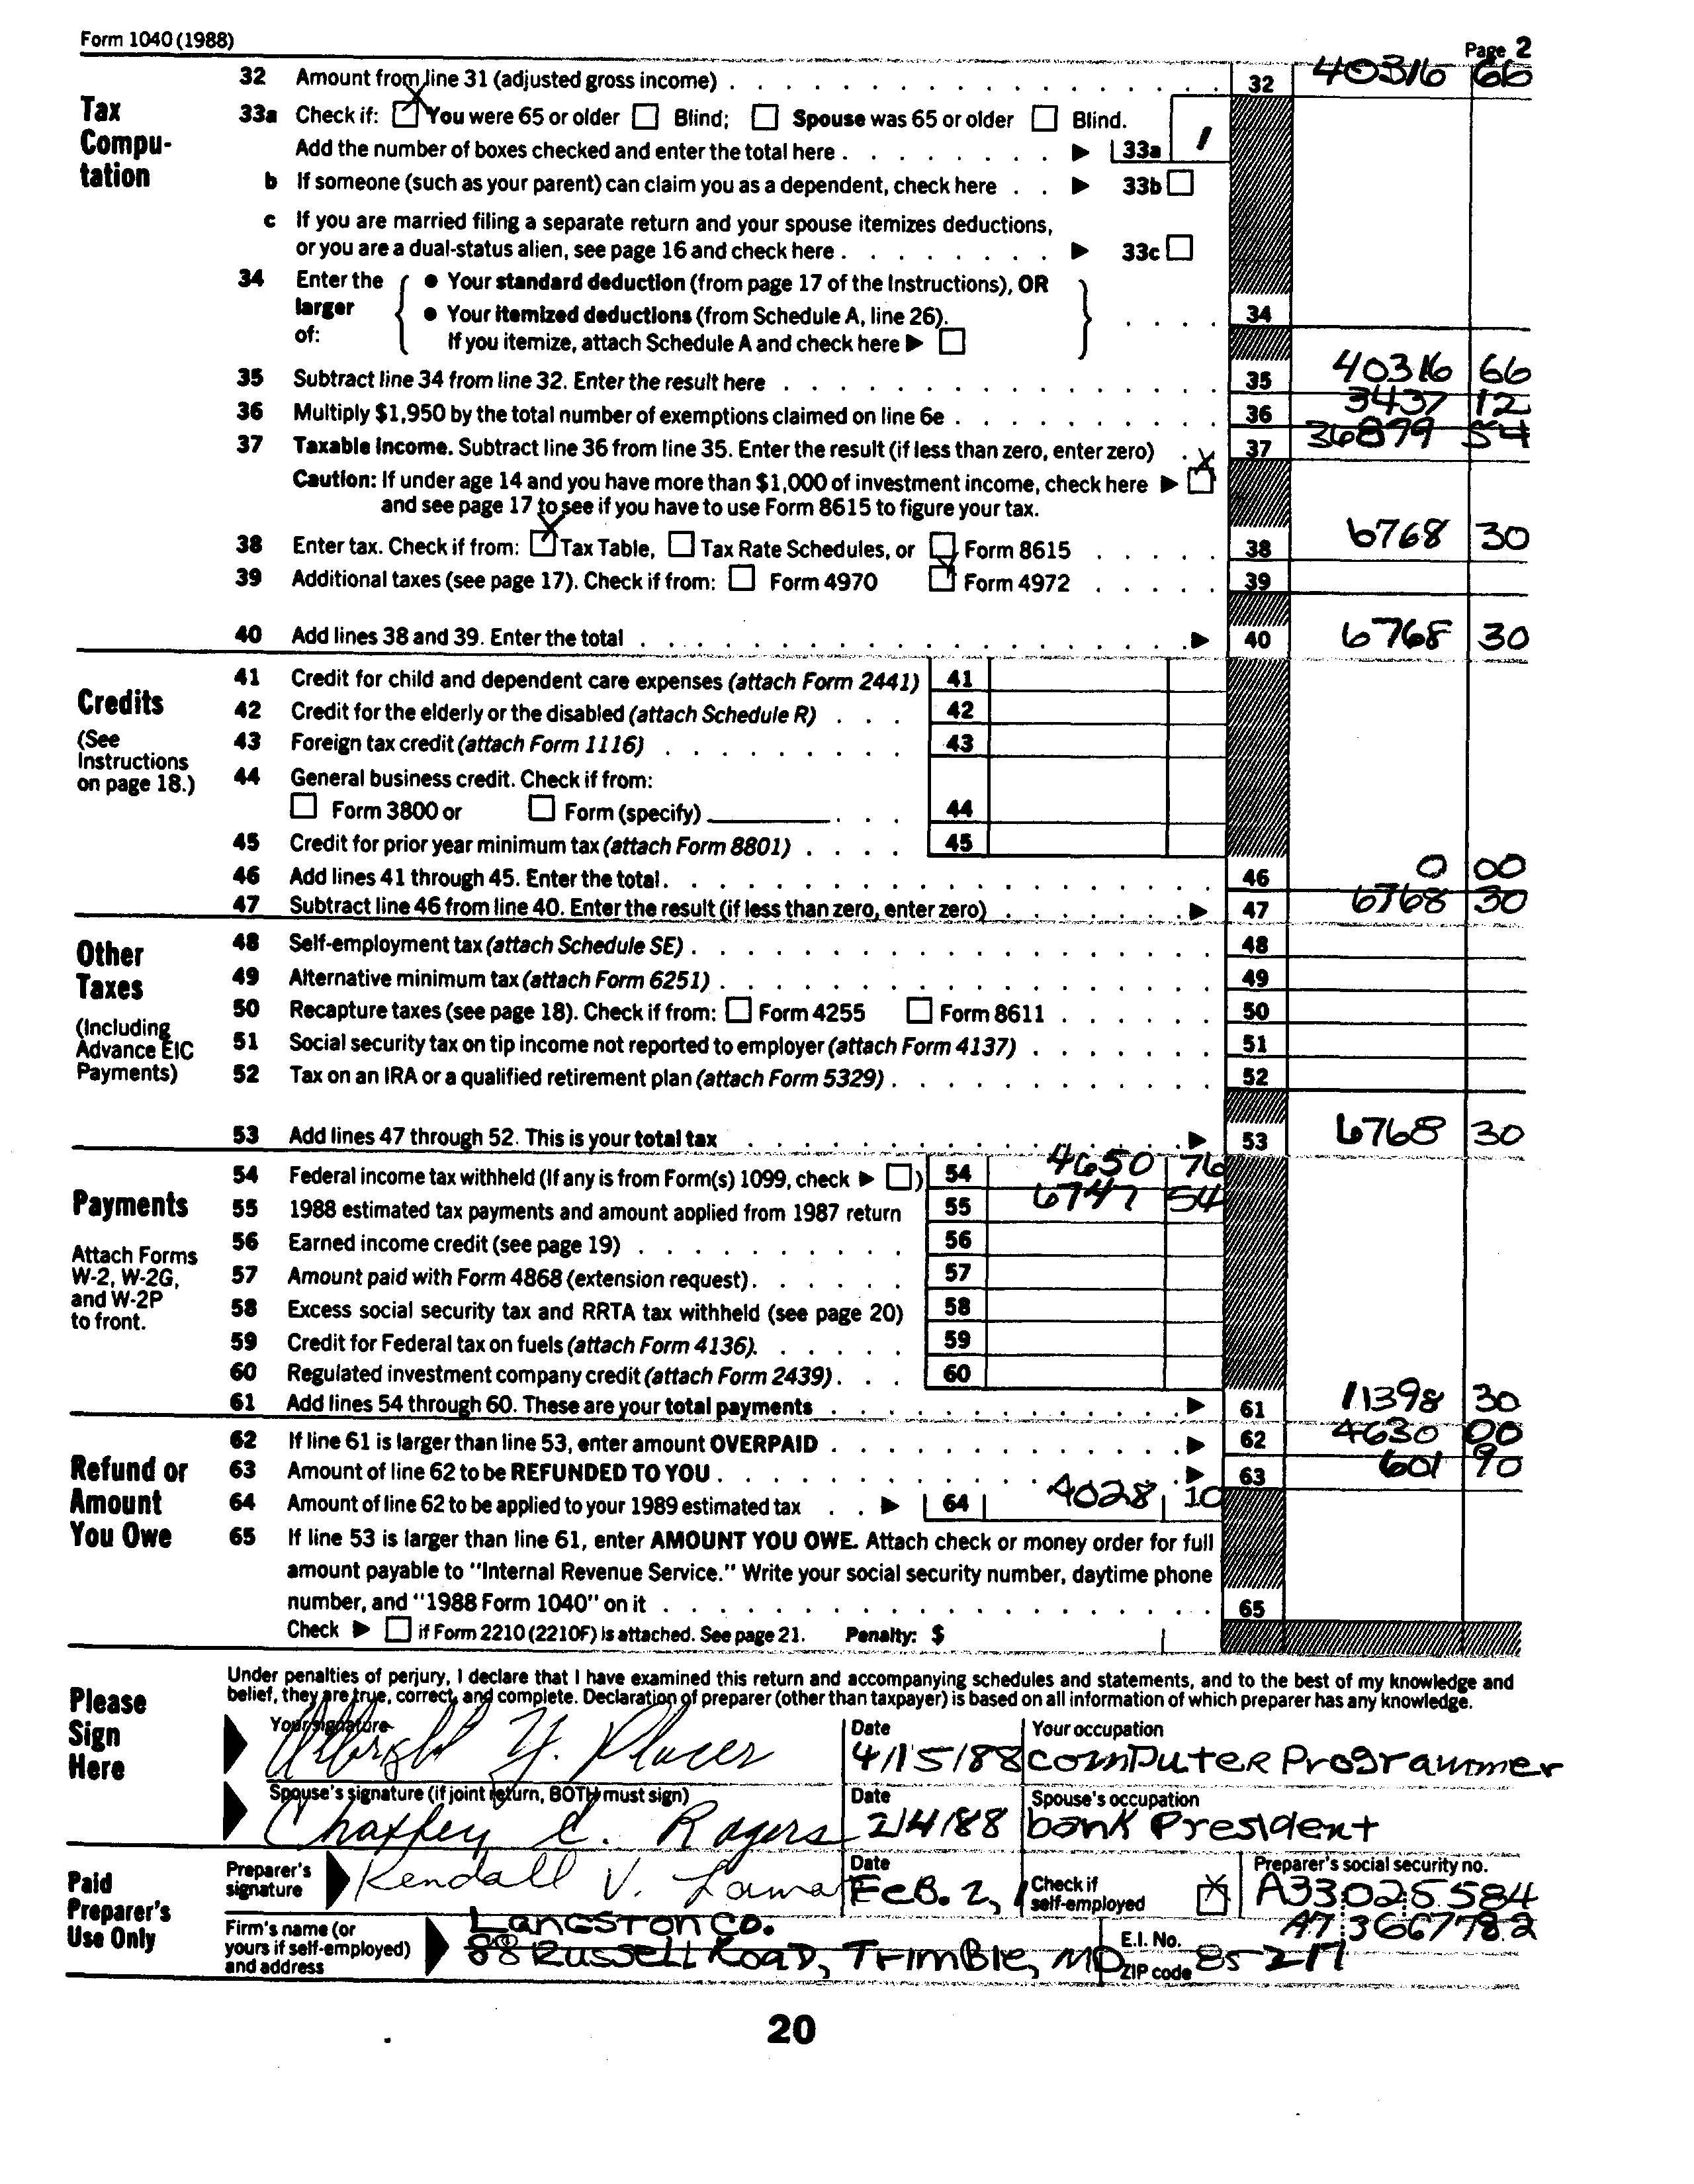 Form 1040 (1988) Page 2
Tax Compu-tation
32 Amount from line 31 (adjusted gross income) 32 40316 66
33a Check if: You were 65 or older Blind; Spouse was 65 or older Blind.
Add the number of boxes checked and enter the total here 33a 1
b If someone (such as your parent) can claim you as a dependent, check here 33b
c If you are married filing a separate return and your spouse itemizes deductions,
or you are a dual-status alien, see page 16 and check here 33c
34 Enter the larger of:
• Your standard deduction (from page 17 of the Instructions), OR
• Your itemized deductions (from Schedule A, line 26). 34
If you itemize, attach Schedule A and check here
35 Subtract line 34 from line 32. Enter the result here 35 40316 66
36 Multiply $1,950 by the total number of exemptions claimed on line 6e 36 3437 12
37 Taxable income. Subtract line 36 from line 35. Enter the result (if less than zero, enter zero) 37 36879 54
Caution: If under age 14 and you have more than $1,000 of investment income, check here
and see page 17 to see if you have to use Form 8615 to figure your tax.
38 Enter tax. Check if from: Tax Table, Tax Rate Schedules, or Form 8615 38 6768 30
39 Additional taxes (see page 17). Check if from: Form 4970 Form 4972 39
40 Add lines 38 and 39. Enter the total 40 6768 30
Credits
(See Instructions on page 18.)
41 Credit for child and dependent care expenses (attach Form 2441) 41
42 Credit for the elderly or the disabled (attach Schedule R) 42
43 Foreign tax credit (attach Form 1116) 43
44 General business credit. Check if from:
Form 3800 or Form (specify) 44
45 Credit for prior year minimum tax (attach Form 8801) 45
46 Add lines 41 through 45. Enter the total. 46 0 00
47 Subtract line 46 from line 40. Enter the result (if less than zero, enter zero) 47 6768 30
Other Taxes
(Including Advance EIC Payments)
48 Self-employment tax (attach Schedule SE) 48
49 Alternative minimum tax (attach Form 6251) 49
50 Recapture taxes (see page 18). Check if from: Form 4255 Form 8611 50
51 Social security tax on tip income not reported to employer (attach Form 4137) 51
52 Tax on an IRA or a qualified retirement plan (attach Form 5329) 52
53 Add lines 47 through 52. This is your total tax 53 6768 30
Payments
Attach Forms W-2, W-2G, and W-2P to front.
54 Federal income tax withheld (If any is from Form(s) 1099, check ) 54 4650 76
55 1988 estimated tax payments and amount applied from 1987 return 55 6747 54
56 Earned income credit (see page 19) 56
57 Amount paid with Form 4868 (extension request) 57
58 Excess social security tax and RRTA tax withheld (see page 20) 58
59 Credit for Federal tax on fuels (attach Form 4136). 59
60 Regulated investment company credit (attach Form 2439) 60
61 Add lines 54 through 60. These are your total payments 61 11398 30
Refund or Amount You Owe
62 If line 61 is larger than line 53, enter amount OVERPAID 62 4630 00
63 Amount of line 62 to be REFUNDED TO YOU 63 601 90
64 Amount of line 62 to be applied to your 1989 estimated tax 64 4028 10
65 If line 53 is larger than line 61, enter AMOUNT YOU OWE. Attach check or money order for full
amount payable to "Internal Revenue Service." Write your social security number, daytime phone
number, and "1988 Form 1040" on it 65
Check if Form 2210 (2210F) is attached. See page 21. Penalty: $
Please Sign Here
Under penalties of perjury, I declare that I have examined this return and accompanying schedules and statements, and to the best of my knowledge and
belief, they are true, correct, and complete. Declaration of preparer (other than taxpayer) is based on all information of which preparer has any knowledge.
Your signature Date Your occupation
Albright Y. Placer 4/15/88 Computer Programmer
Spouse's signature (if joint return, BOTH must sign) Date Spouse's occupation
Chaffey C. Rogers 2/4/88 bank President
Paid Preparer's Use Only
Preparer's signature Date Check if self-employed Preparer's social security no.
Kendall V. Lamar Feb. 2, 1 A33025584
Firm's name (or yours if self-employed) and address E.I. No. ZIP code
Langston Co. A73667782
88 Russell Road, Trimble, MD 85217
20